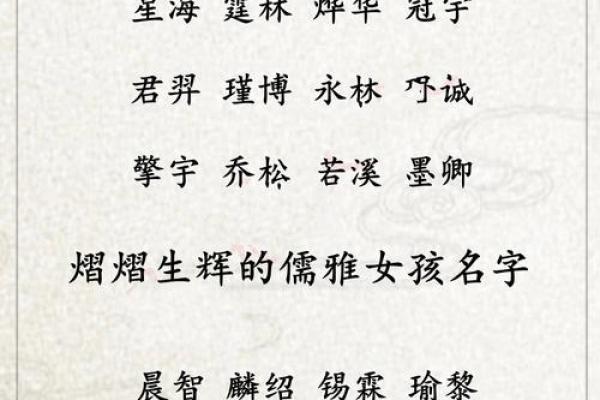 星海 霆林 烨华 冠宇
君羿 瑾博 永林 诚
擎宇 乔松 若溪 墨卿
熠熠生辉的儒雅女孩名字
晨智 麟绍 锡霖 瑜黎